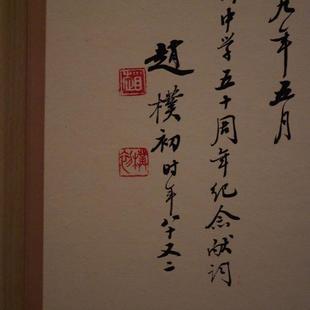 九年五月
中学五十周年纪念献词
趙樸初时年八十又二